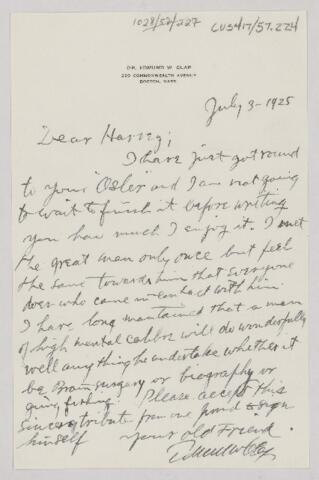 1028/52/227
CUS417/57.224
DR. EDMUND W. CLAP
220 COMMONWEALTH AVENUE
BOSTON, MASS.
July 3-1925
Dear Harvey;
I have just got round
to your "Osler" and I am not going
to wait to finish it before writing
you how much I enjoy it. I met
the great man only once but feel
the same towards him that everyone
does who came in contact with him.
I have long maintained that a man
of high mental calibre will do wonderfully
well anything he undertakes whether it
be Brain surgery or biography or
going fishing. Please accept this
sincere tribute from one proud to sign
himself your old Friend.
Edmund W Clap